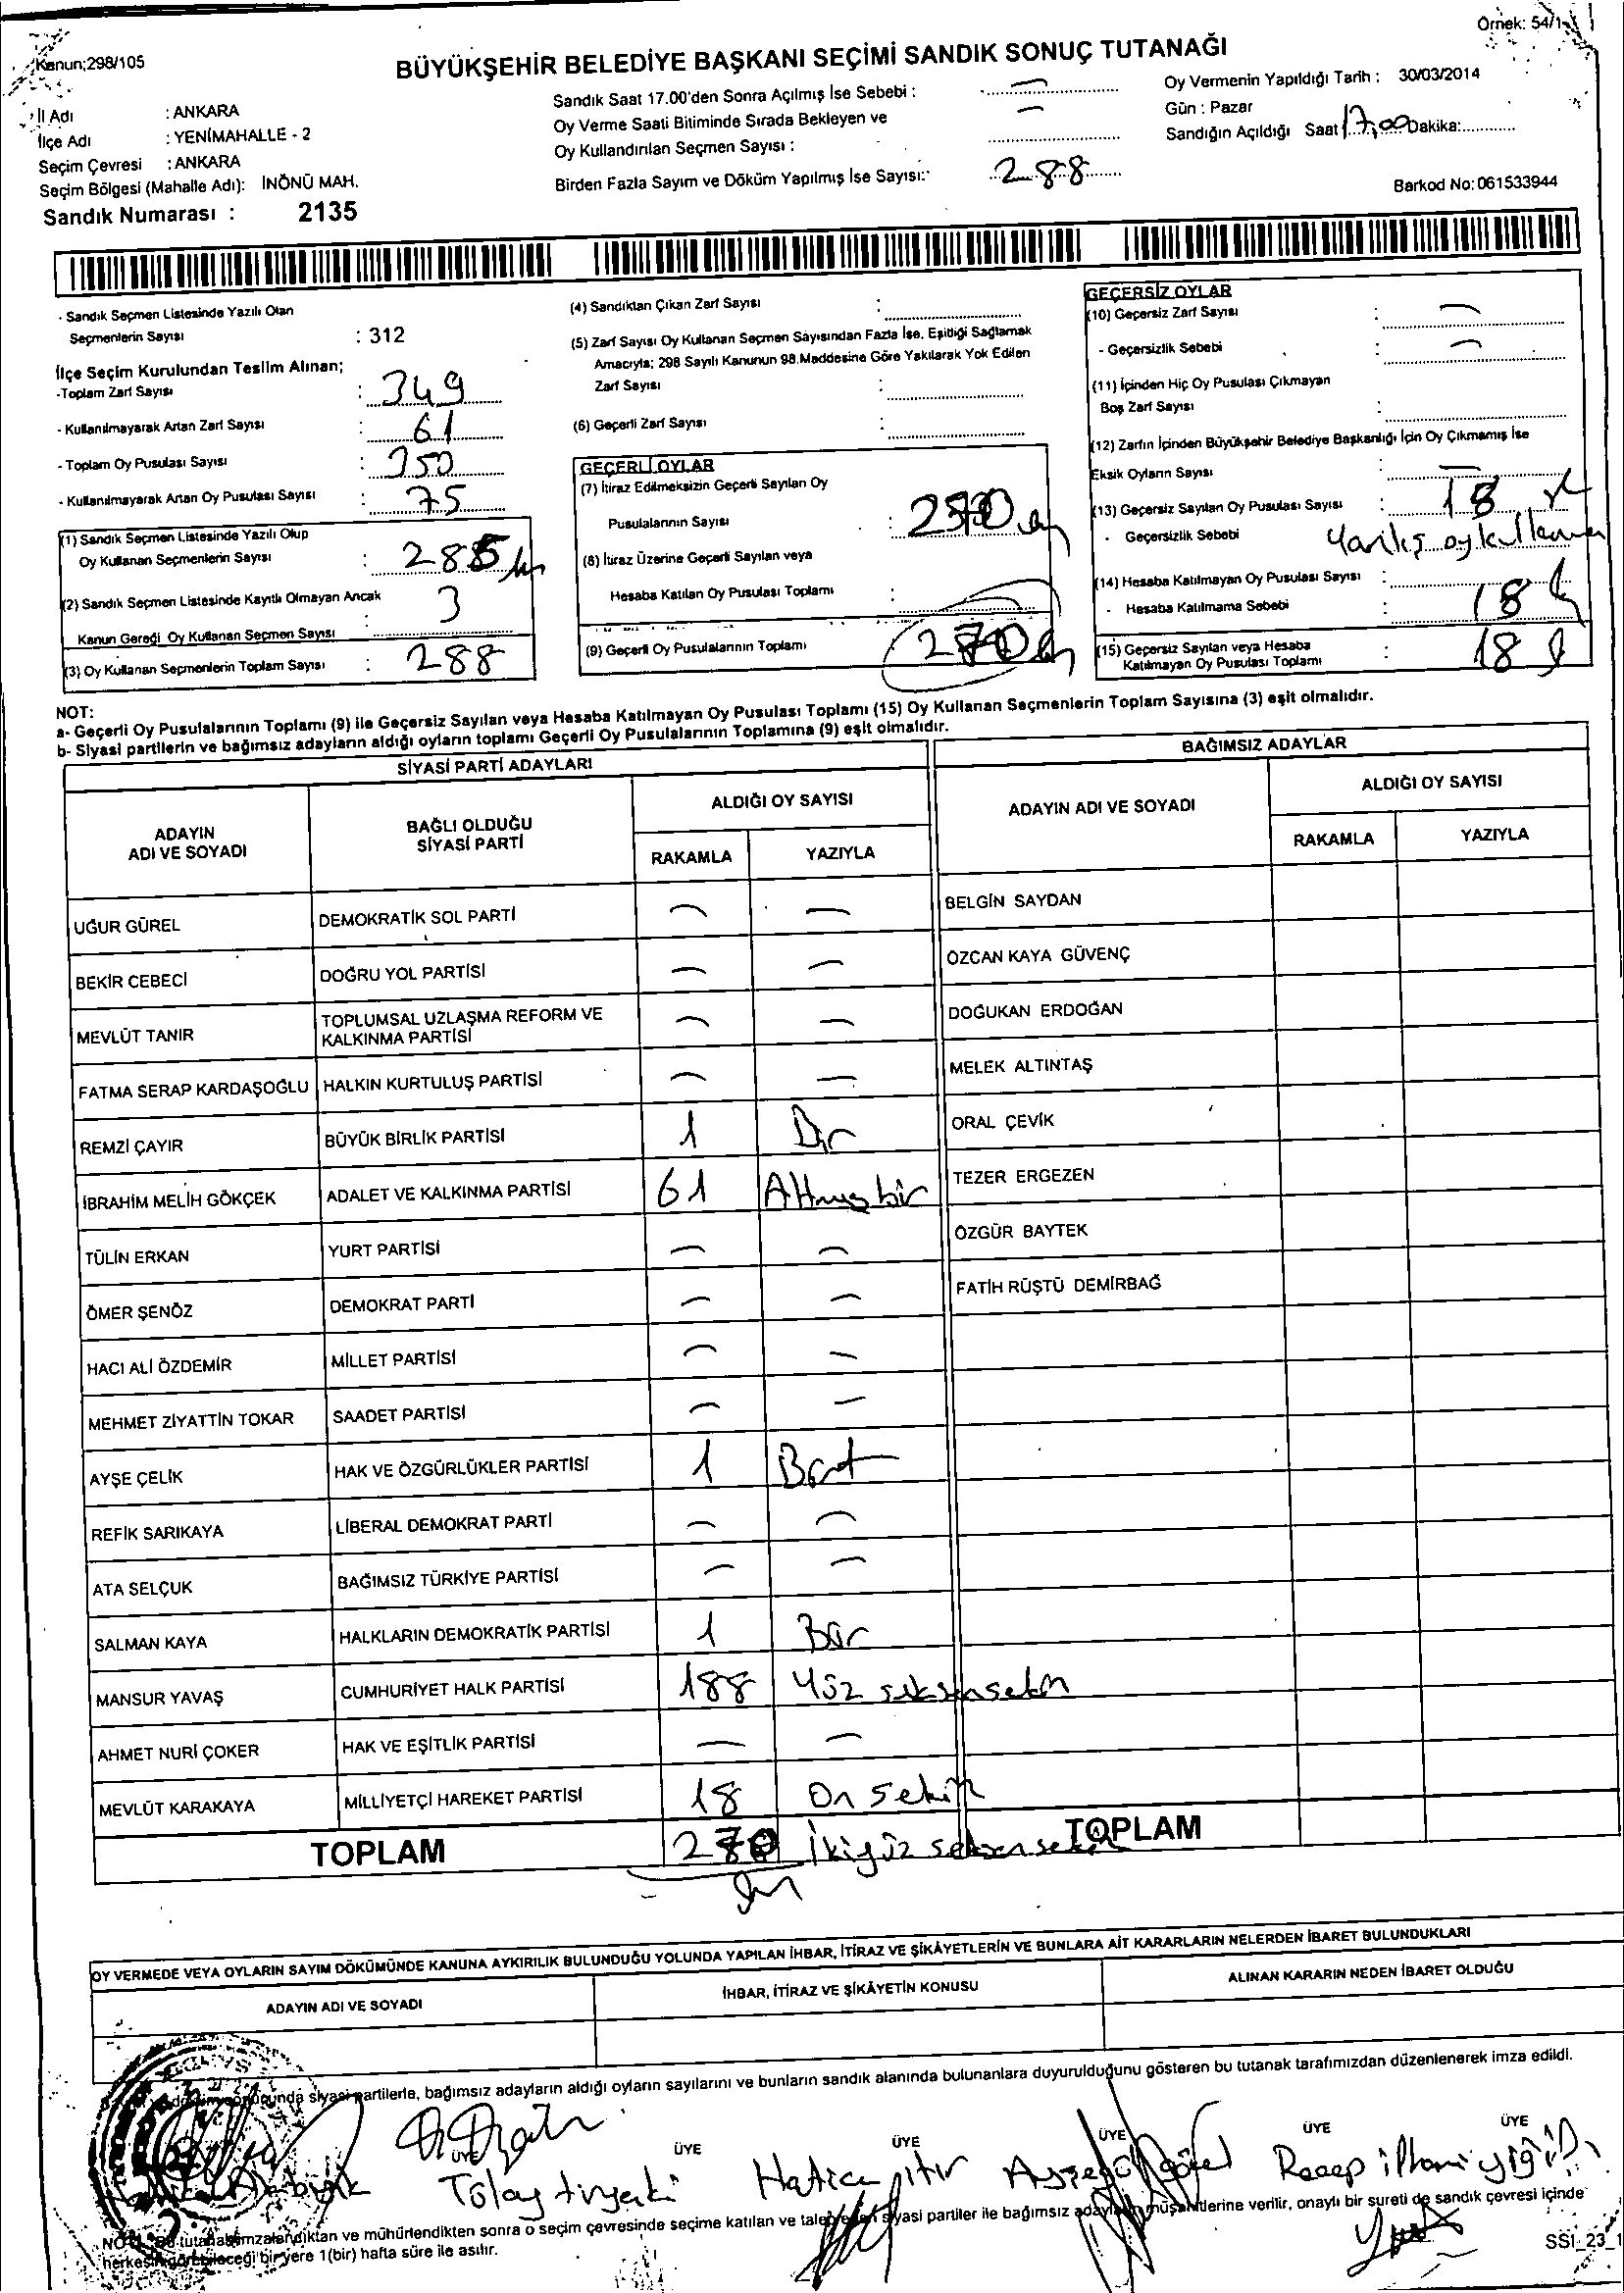 Örnek: 54/1
Kanun;298/105
BÜYÜKŞEHİR BELEDİYE BAŞKANI SEÇİMİ SANDIK SONUÇ TUTANAĞI
İl Adı : ANKARA
İlçe Adı : YENİMAHALLE - 2
Seçim Çevresi : ANKARA
Seçim Bölgesi (Mahalle Adı): İNÖNÜ MAH.
Sandık Numarası : 2135
Sandık Saat 17.00'den Sonra Açılmış İse Sebebi : —
Oy Verme Saati Bitiminde Sırada Bekleyen ve —
Oy Kullandırılan Seçmen Sayısı :
Birden Fazla Sayım ve Döküm Yapılmış İse Sayısı: 288
Oy Vermenin Yapıldığı Tarih : 30/03/2014
Gün : Pazar
Sandığın Açıldığı Saat 17,00 Dakika:
Barkod No: 061533944
- Sandık Seçmen Listesinde Yazılı Olan
Seçmenlerin Sayısı : 312
İlçe Seçim Kurulundan Teslim Alınan;
-Toplam Zarf Sayısı : 349
- Kullanılmayarak Artan Zarf Sayısı : 61
- Toplam Oy Pusulası Sayısı : 350
- Kullanılmayarak Artan Oy Pusulası Sayısı : 75
(1) Sandık Seçmen Listesinde Yazılı Olup
Oy Kullanan Seçmenlerin Sayısı : 285
(2) Sandık Seçmen Listesinde Kayıtlı Olmayan Ancak
Kanun Gereği Oy Kullanan Seçmen Sayısı : 3
(3) Oy Kullanan Seçmenlerin Toplam Sayısı : 288
(4) Sandıktan Çıkan Zarf Sayısı :
(5) Zarf Sayısı Oy Kullanan Seçmen Sayısından Fazla İse, Eşitliği Sağlamak
Amacıyla; 298 Sayılı Kanunun 98.Maddesine Göre Yakılarak Yok Edilen
Zarf Sayısı :
(6) Geçerli Zarf Sayısı :
GEÇERLİ OYLAR
(7) İtiraz Edilmeksizin Geçerli Sayılan Oy
Pusulalarının Sayısı : 270
(8) İtiraz Üzerine Geçerli Sayılan veya
Hesaba Katılan Oy Pusulası Toplamı :
(9) Geçerli Oy Pusulalarının Toplamı 270
GEÇERSİZ OYLAR
(10) Geçersiz Zarf Sayısı : —
- Geçersizlik Sebebi : —
(11) İçinden Hiç Oy Pusulası Çıkmayan
Boş Zarf Sayısı :
(12) Zarfın İçinden Büyükşehir Belediye Başkanlığı İçin Oy Çıkmamış İse
Eksik Oyların Sayısı : —
(13) Geçersiz Sayılan Oy Pusulası Sayısı : 18
- Geçersizlik Sebebi
(14) Hesaba Katılmayan Oy Pusulası Sayısı :
- Hesaba Katılmama Sebebi : 18
(15) Geçersiz Sayılan veya Hesaba
Katılmayan Oy Pusulası Toplamı : 18
NOT:
a- Geçerli Oy Pusulalarının Toplamı (9) ile Geçersiz Sayılan veya Hesaba Katılmayan Oy Pusulası Toplamı (15) Oy Kullanan Seçmenlerin Toplam Sayısına (3) eşit olmalıdır.
b- Siyasi partilerin ve bağımsız adayların aldığı oyların toplamı Geçerli Oy Pusulalarının Toplamına (9) eşit olmalıdır.
SİYASİ PARTİ ADAYLARI
ADAYIN ADI VE SOYADI
BAĞLI OLDUĞU SİYASİ PARTİ
ALDIĞI OY SAYISI
RAKAMLA YAZIYLA
UĞUR GÜREL DEMOKRATİK SOL PARTİ — —
BEKİR CEBECİ DOĞRU YOL PARTİSİ — —
MEVLÜT TANIR TOPLUMSAL UZLAŞMA REFORM VE KALKINMA PARTİSİ — —
FATMA SERAP KARDAŞOĞLU HALKIN KURTULUŞ PARTİSİ — —
REMZİ ÇAYIR BÜYÜK BİRLİK PARTİSİ 1 Bir
İBRAHİM MELİH GÖKÇEK ADALET VE KALKINMA PARTİSİ 61 Altmışbir
TÜLİN ERKAN YURT PARTİSİ — —
ÖMER ŞENÖZ DEMOKRAT PARTİ — —
HACI ALİ ÖZDEMİR MİLLET PARTİSİ — —
MEHMET ZİYATTİN TOKAR SAADET PARTİSİ — —
AYŞE ÇELİK HAK VE ÖZGÜRLÜKLER PARTİSİ 1
REFİK SARIKAYA LİBERAL DEMOKRAT PARTİ — —
ATA SELÇUK BAĞIMSIZ TÜRKİYE PARTİSİ — —
SALMAN KAYA HALKLARIN DEMOKRATİK PARTİSİ 1 Bir
MANSUR YAVAŞ CUMHURİYET HALK PARTİSİ 188 Yüz seksensekiz
AHMET NURİ ÇOKER HAK VE EŞİTLİK PARTİSİ — —
MEVLÜT KARAKAYA MİLLİYETÇİ HAREKET PARTİSİ 18 On sekiz
TOPLAM 270 İkiyüz seksensekiz
BAĞIMSIZ ADAYLAR
ADAYIN ADI VE SOYADI
ALDIĞI OY SAYISI
RAKAMLA YAZIYLA
BELGİN SAYDAN
ÖZCAN KAYA GÜVENÇ
DOĞUKAN ERDOĞAN
MELEK ALTINTAŞ
ORAL ÇEVİK
TEZER ERGEZEN
ÖZGÜR BAYTEK
FATİH RÜŞTÜ DEMİRBAĞ
TOPLAM
OY VERMEDE VEYA OYLARIN SAYIM DÖKÜMÜNDE KANUNA AYKIRILIK BULUNDUĞU YOLUNDA YAPILAN İHBAR, İTİRAZ VE ŞİKÂYETLERİN VE BUNLARA AİT KARARLARIN NELERDEN İBARET BULUNDUKLARI
ADAYIN ADI VE SOYADI
İHBAR, İTİRAZ VE ŞİKÂYETİN KONUSU
ALINAN KARARIN NEDEN İBARET OLDUĞU
siyasi partilerle, bağımsız adayların aldığı oyların sayılarını ve bunların sandık alanında bulunanlara duyurulduğunu gösteren bu tutanak tarafımızdan düzenlenerek imza edildi.
ÜYE ÜYE ÜYE ÜYE ÜYE ÜYE
Tülay tiryaki Hatice Ayşegül Recep ilhami yiğit
NOT: Bu tutanak imzalandıktan ve mühürlendikten sonra o seçim çevresinde seçime katılan ve talep eden siyasi partiler ile bağımsız adayların müşahitlerine verilir, onaylı bir sureti de sandık çevresi içinde
herkesin görebileceği bir yere 1(bir) hafta süre ile asılır.
SSI_23_1